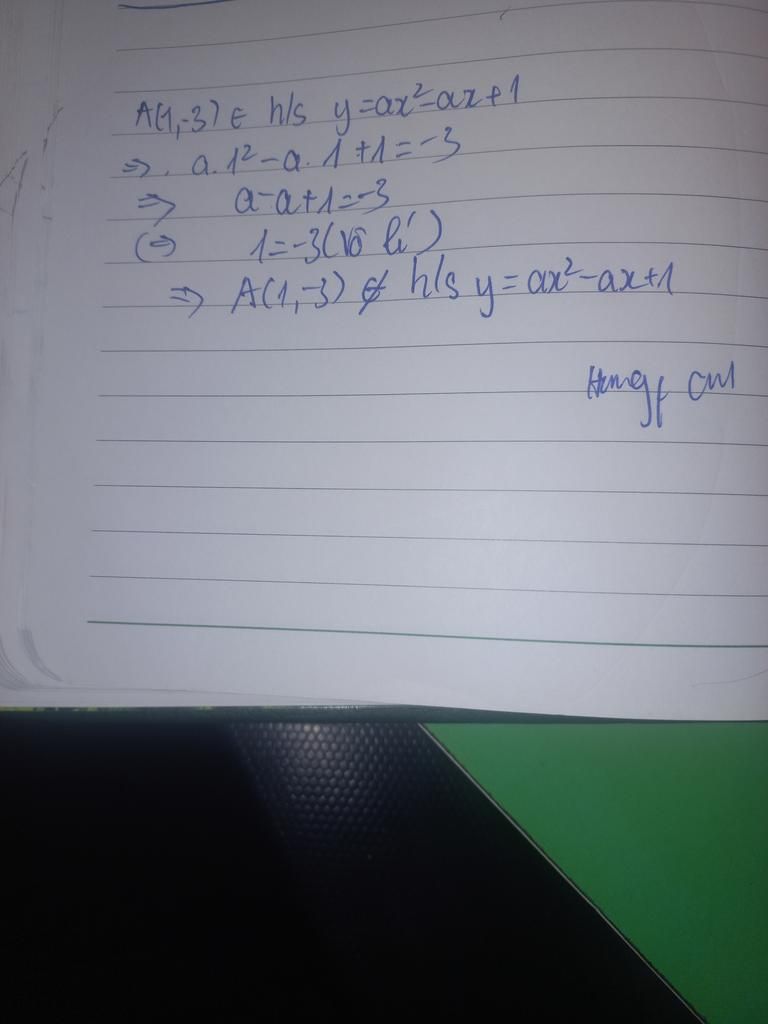 A(1,-3) ∈ h/s y=ax²-ax+1
⇒. a.1²-a.1+1=-3
⇒ a-a+1=-3
(⇒ 1=-3(vô lí)
⇒ A(1,-3) ∉ h/s y=ax²-ax+1